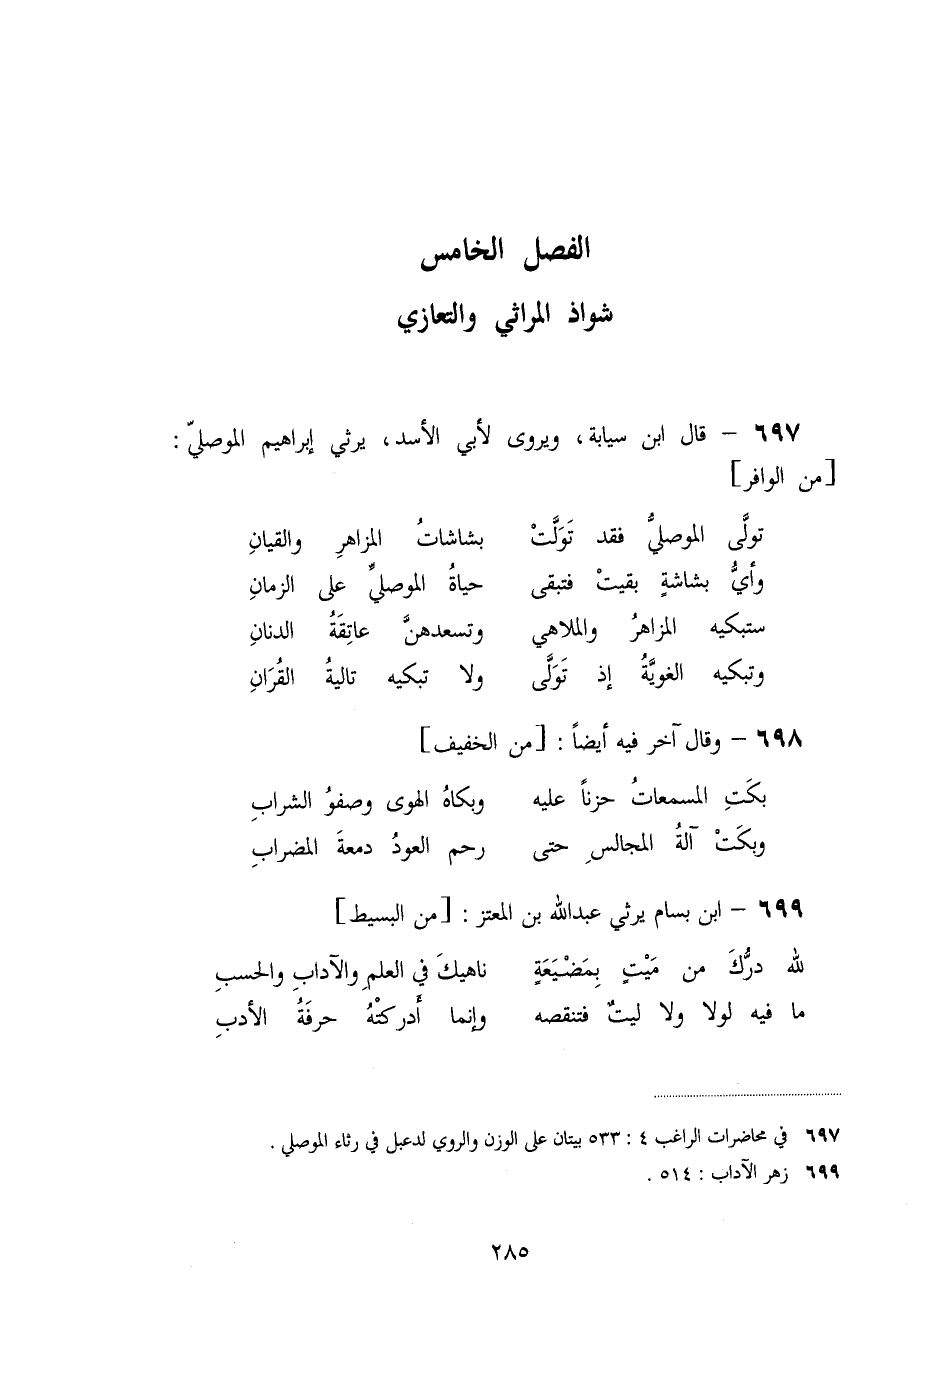 الفصل الخامس
شواذ المراثي والتعازي
٦٩٧ – قال ابن سيابة، ويروى لأبي الأسد، يرثي إبراهيم الموصليّ :
[من الوافر]
تولَّى الموصليُّ فقد تَوَلَّتْ بشاشاتُ المزاهرِ والقيانِ
وأيُّ بشاشةٍ بقيتْ فتبقى حياةُ الموصليِّ على الزمانِ
ستبكيه المزاهرُ والملاهي وتسعدهنَّ عاتِقَةُ الدنانِ
وتبكيه الغويَّةُ إذ تَوَلَّى ولا تبكيه تاليةُ القُرَانِ
٦٩٨ – وقال آخر فيه أيضاً : [من الخفيف]
بكَتِ المسمعاتُ حزناً عليه وبكاهُ الهوى وصفوُ الشرابِ
وبكَتْ آلةُ المجالسِ حتى رحم العودُ دمعةَ المضرابِ
٦٩٩ – ابن بسام يرثي عبدالله بن المعتز : [من البسيط]
لله درُّكَ من مَيْتٍ بِمَضْيَعَةٍ ناهيكَ في العلمِ والآدابِ والحسبِ
ما فيه لولا ولا ليتٌ فتنقصه وإنما أدركتْهُ حرفَةُ الأدبِ
٦٩٧ في محاضرات الراغب ٤ : ٥٣٣ بيتان على الوزن والروي لدعبل في رثاء الموصلي .
٦٩٩ زهر الآداب : ٥١٤ .
٢٨٥